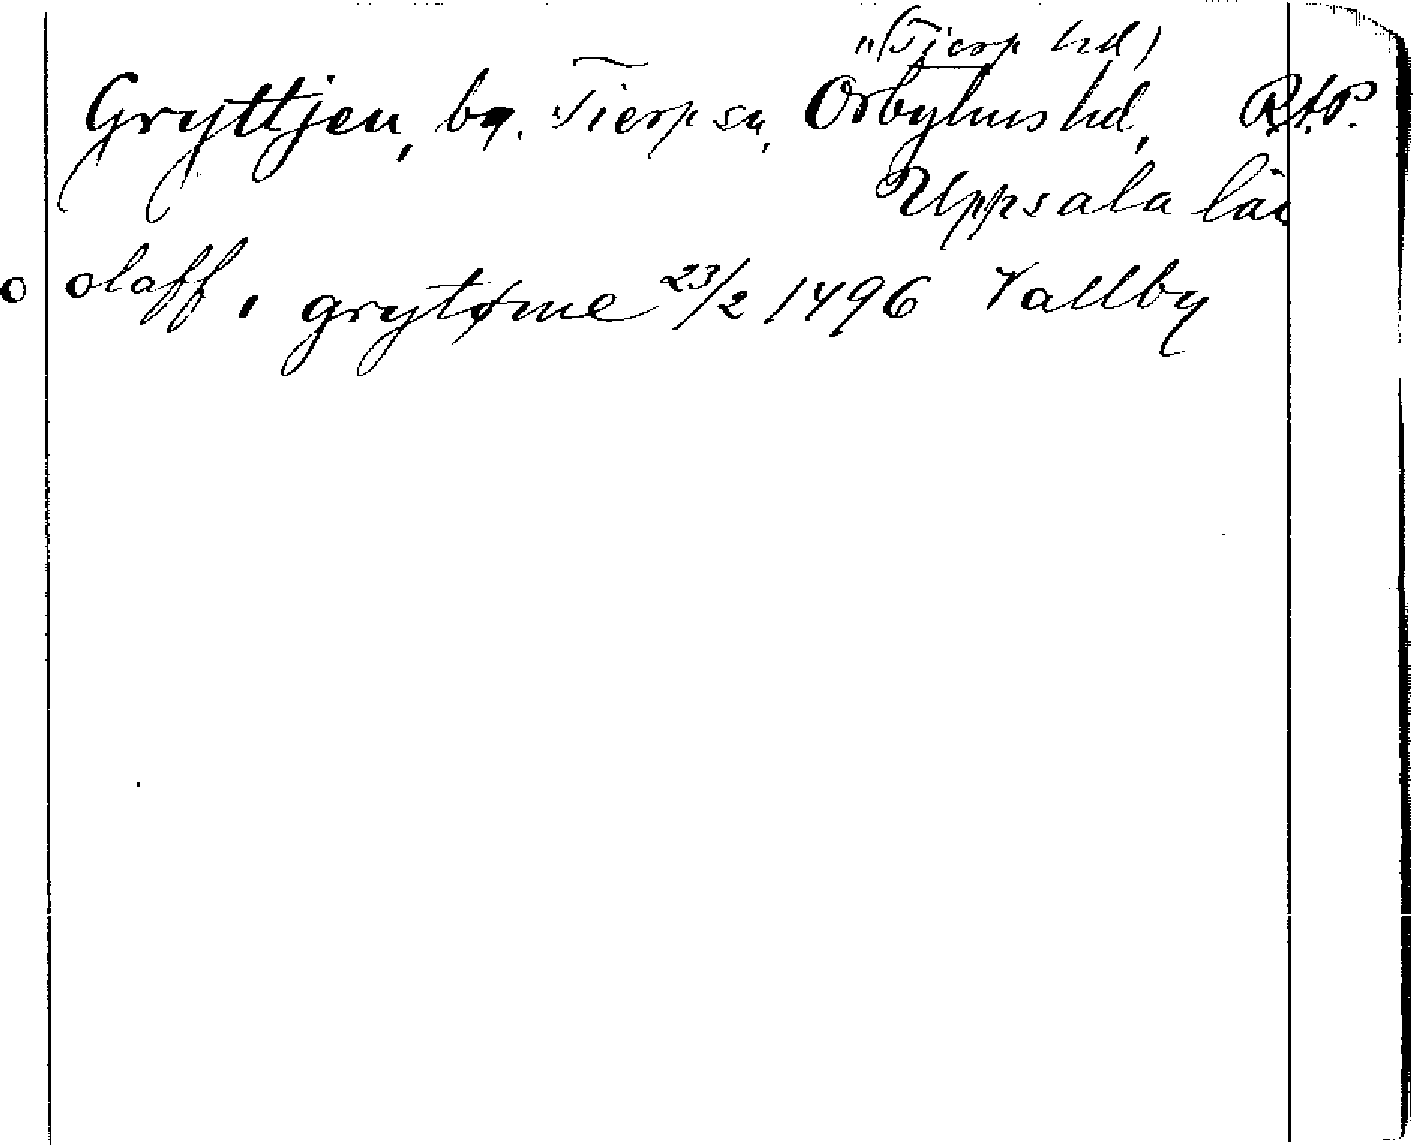 "(Tierp hd)
Gryttjen, by. Tierp sn, Örbyhus hd,
Uppsala län
o olaff i grytøme 23/2 1496 Vallby